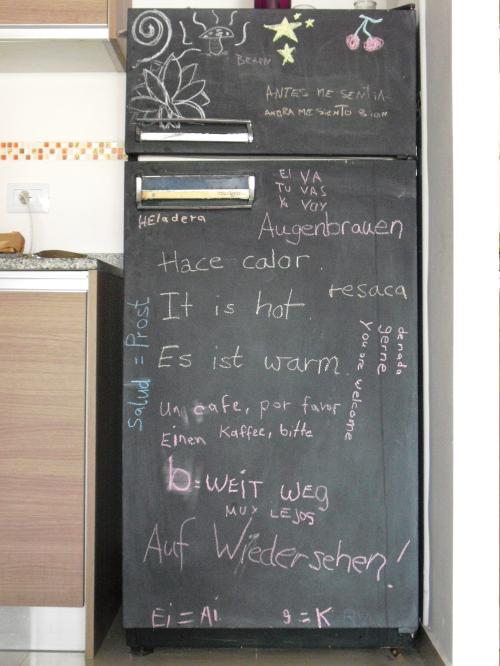 BEAPN
ANTES ME SENTIA
AHORA ME SIENTO BIEN
El VA
TU VAS
YO VOY
HEladera
Augenbrauen
Hace calor.
resaca
It is hot.
Salud = Prost
denada
gerne
You are welcome
Es ist warm.
Un cafe, por favor
Einen Kaffee, bitte
b=WEIT WEG
MUY LEJOS
Auf Wiedersehen!
Ei = Ai
g = K